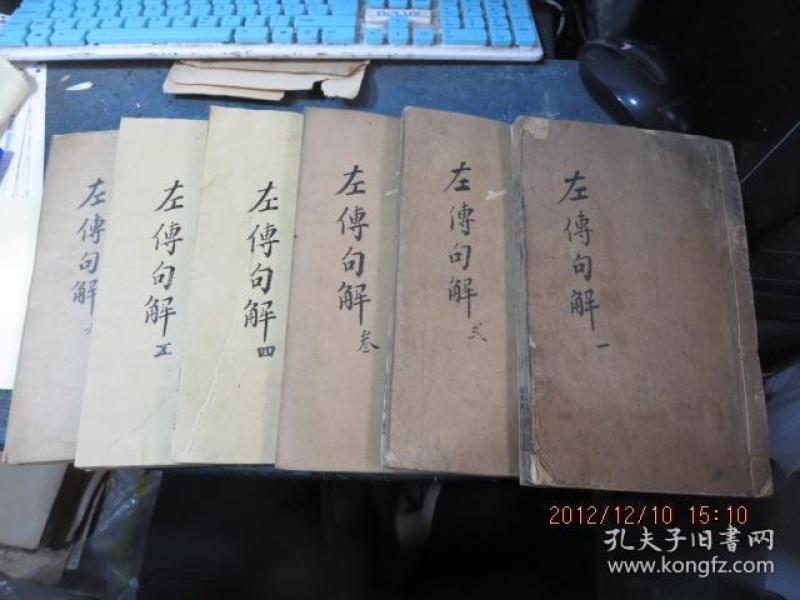 左傳句解 一
左傳句解 弍
左傳句解 叁
左傳句解 四
左傳句解 五
左傳句解 六
2012/12/10 15:10
孔夫子旧书网
www.kongfz.com